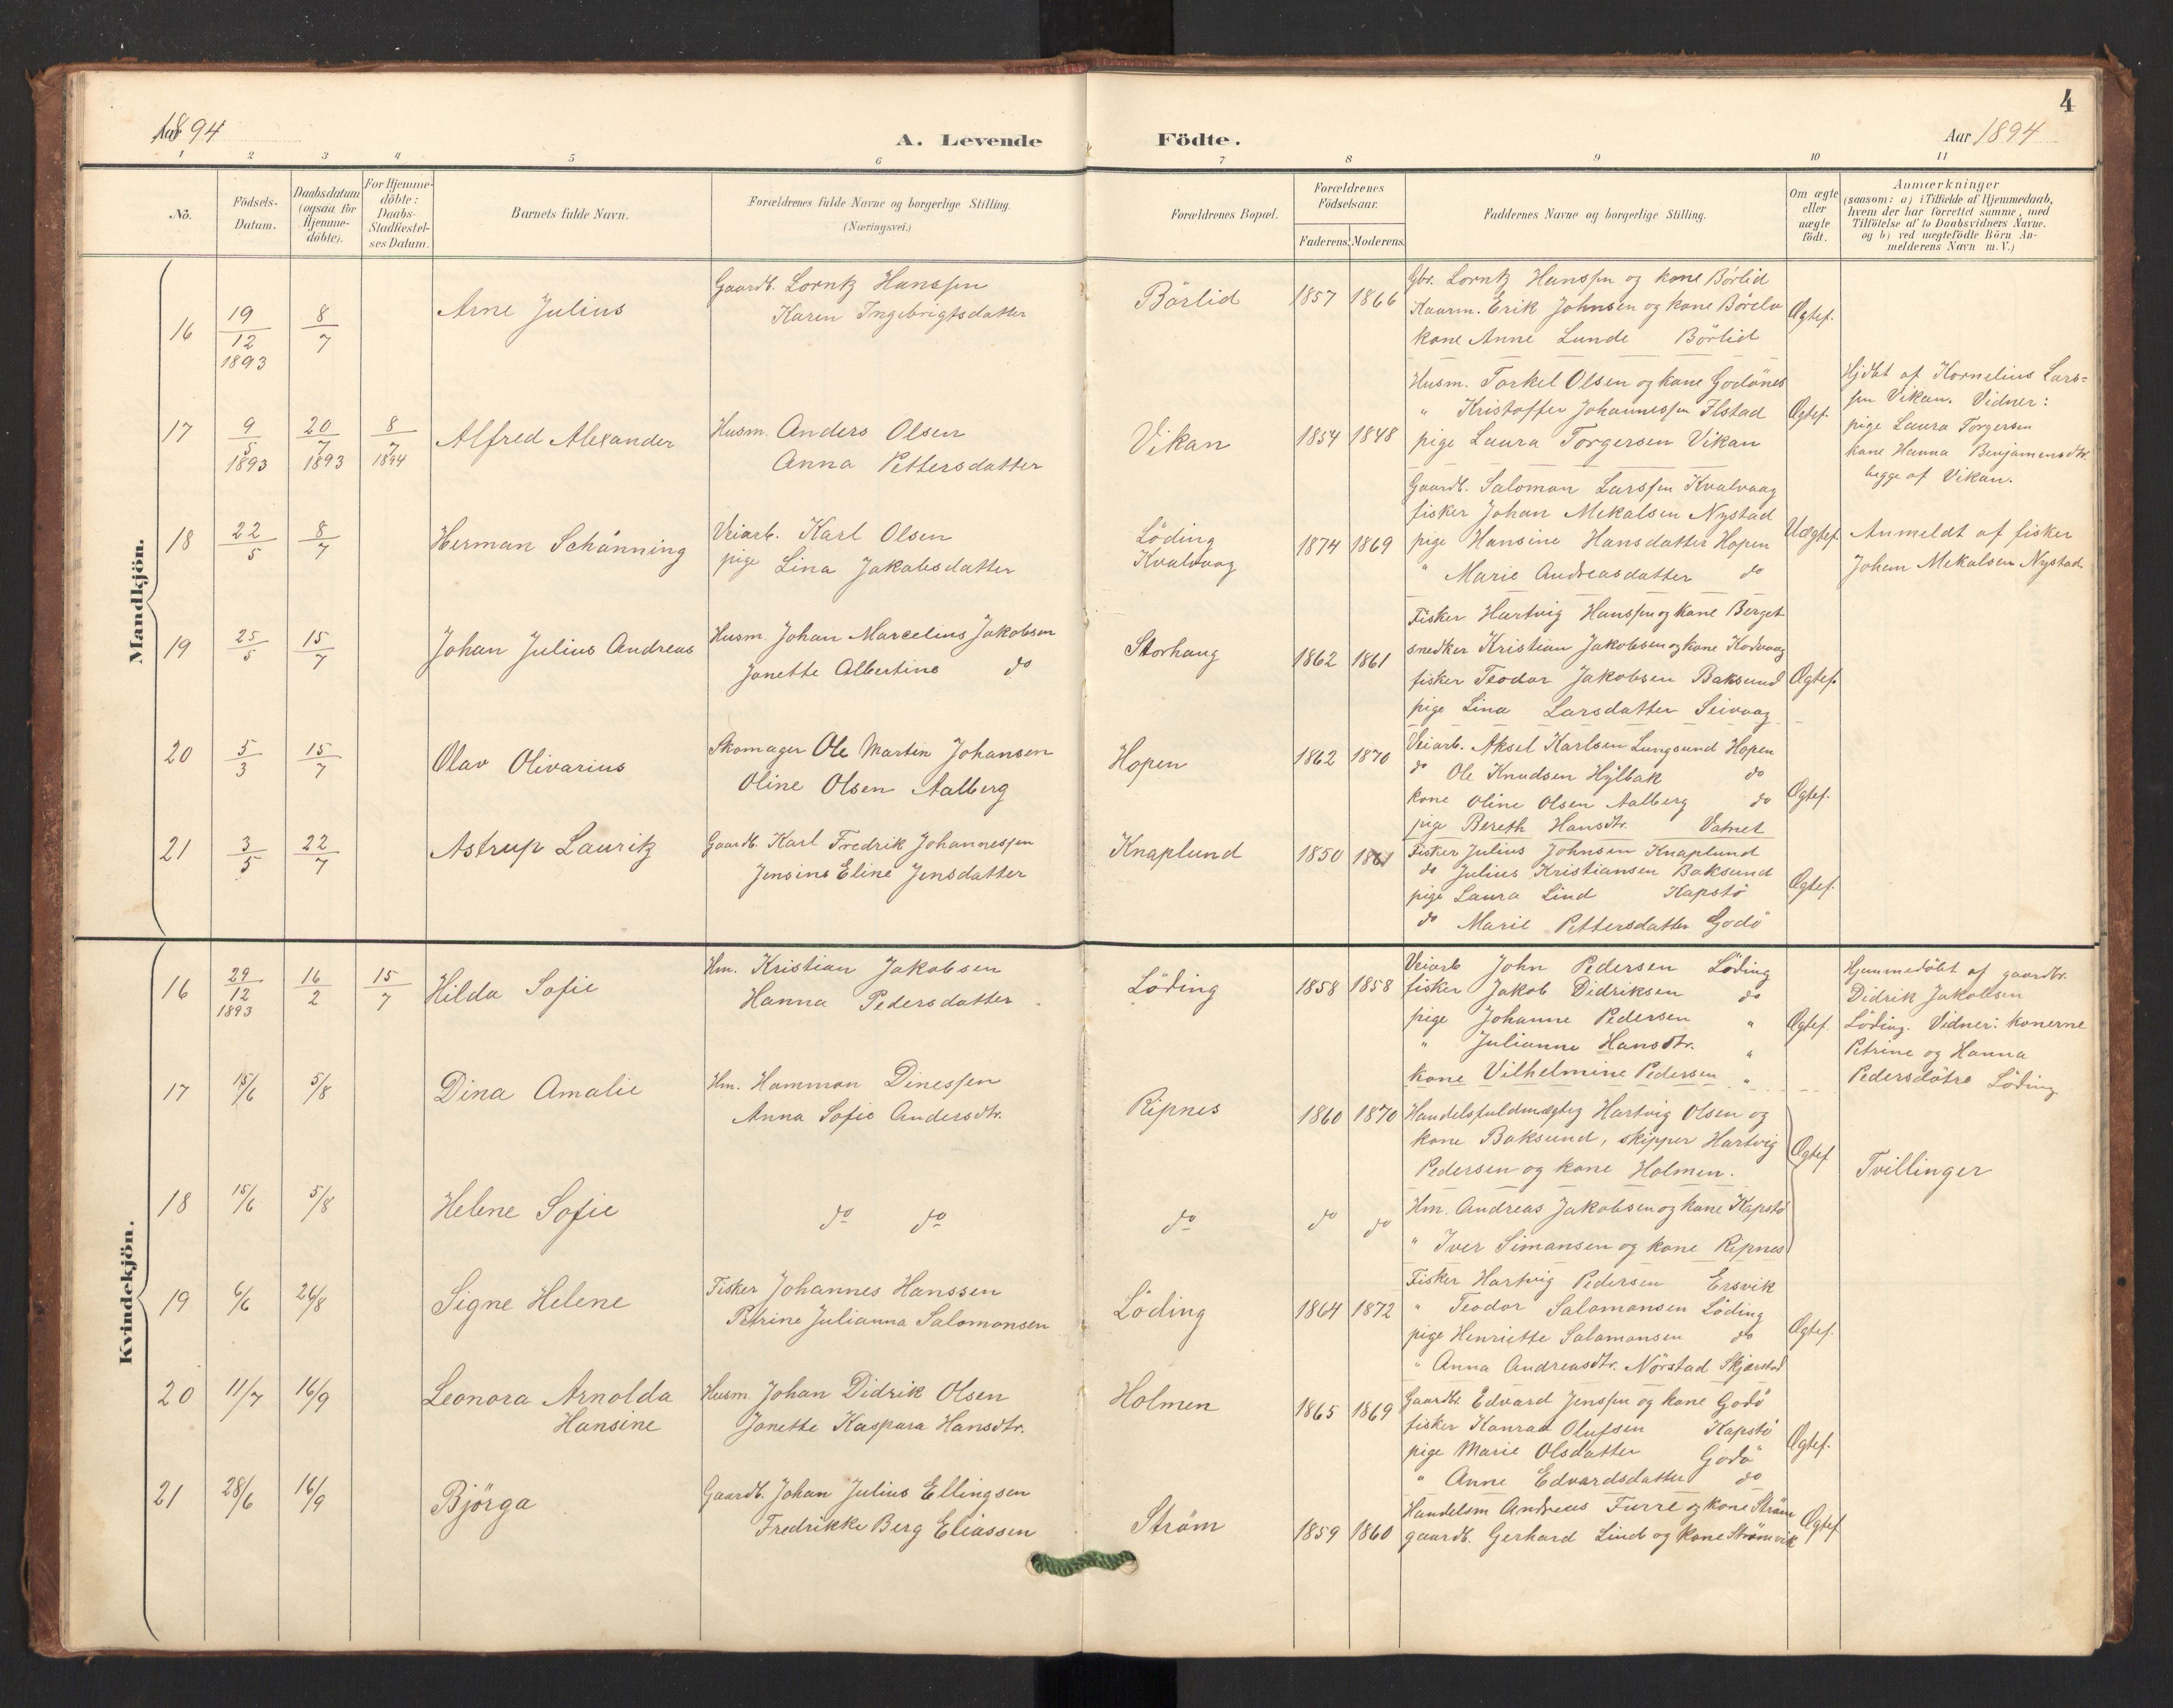 4
Aar 1894
A. Levende Födte.
Aar 1894
1 2 3 4 5 6 7 8 9 10 11
No. Födsels-Datum. Daabsdatum (ogsaa for Hjemme-döbte). For Hjemme-döbte: Daabs-Stadfæstel-ses Datum. Barnets fulde Navn. Forældrenes fulde Navne og borgerlige Stilling. (Næringsvei.) Forældrenes Bopæl. Forældrenes Födselsaar. Faderens. Moderens. Faddernes Navne og borgerlige Stilling. Om ægte eller uægte födt. Anmærkninger (saasom: a) i Tilfælde af Hjemmedaab, hvem der har forrettet samme, med Tilföielse af to Daabsvidners Navne. og b) ved uægtefödte Börn An-melderens Navn m. V.)
Mandkjön.
16 19/12 1893 8/7 Arne Julius
Gaardb. Lorntz Hanssen
Karen Ingebrigtsdatter
Börlid 1857 1866
Gbr. Lorntz Hanssen og kone Börlid
Kaarm. Erik Johnsen og kone
kone Anne Lunde Börlid
Ægtef.
17 9/5 1893 20/7 1893 8/7 1894 Alfred Alexander
Husm. Anders Olsen
Anna Pettersdatter
Vikan 1854 1848
Husm. Torkel Olsen og kone Godönes
" Kristoffer Johannessen Ilstad
pige Laura Torgersen Vikan
Ægtef.
Hjdbt af Kornelius Lars=
sen Vikan. Vidner:
pige Laura Torgersen
kone Hanna Benjaminsdtr.
begge af Vikan.
18 22/5 8/7 Herman Schånning
Veiarb. Karl Olsen
pige Lina Jakobsdatter
Löding
Kvalvaag
1874 1869
Gaardb. Salomon Larssen Kvalvaag
fisker Johan Mekalsen Nystad
pige Hansine Hansdatter Hopen
" Marie Andreasdatter do
Uægtef.
Anmeldt af fisker
Johan Mekalsen Nystad
19 25/5 15/7 Johan Julius Andreas
Husm. Johan Marcelius Jakobsen
Janette Albertine do
Storhaug 1862 1861
Fisker Hartvig Hanssen og kone Berget
snedker Kristian Jakobsen og kone Kodvaag
fisker Teodor Jakobsen Baksund
pige Lina Larsdatter Seivaag
Ægtef.
20 5/3 15/7 Olav Olivarius
Skomager Ole Martin Johansen
Oline Olsen Aalberg
Hopen 1862 1870
Veiarb. Aksel Karlsen Lungsund Hopen
do Ole Knudsen Hÿlbak do
kone Oline Olsen Aalberg do
pige Bereth Hansdtr. Vatnet
Ægtef.
21 3/5 22/7 Astrup Lauritz
Gaardb. Karl Fredrik Johannessen
Jensine Eline Jensdatter
Knaplund 1850 1861
Fisker Julius Johnsen Knaplund
do Julius Kristiansen Baksund
pige Laura Lind Kapstö
do Marie Pettersdatter Godö
Ægtef.
Kvindekjön.
16 29/12 1893 16/2 15/7 Hilda Sofie
Hm. Kristian Jakobsen
Hanna Pedersdatter
Löding 1858 1858
Veiarb John Pedersen Löding
fisker Jakob Didriksen do
pige Johanne Pedersen "
" Julianne Hansdtr. "
kone Vilhelmine Pedersen "
Ægtef.
Hjemmedöbt af gaardbr.
Didrik Jakobsen
Löding. Vidner: konerne
Petrine og Hanna
Pedersdötre Löding
17 15/6 5/8 Dina Amalie
Hm. Hammon Dinessen
Anna Sofie Andersdtr.
Ripnes 1860 1870
Handelsfuldmægtig Hartvig Olsen og
kone Baksund, skipper Hartvig
Pedersen og kone Holmen.
Ægtef
Tvillinger
18 15/6 5/8 Helene Sofie
do do do do do
Hm. Andreas Jakobsen og kone Kapstö
" Iver Simonsen og kone Ripnes
19 6/6 26/8 Signe Helene
Fisker Johannes Hanssen
Petrine Julianna Salomonsen
Löding 1864 1872
Fisker Hartvig Pedersen Ersvik
" Teodor Salomonsen Löding
pige Henriette Salomonsen do
" Anna Andreasdtr. Nörstad Skjerstad
Ægtef.
20 11/7 16/9 Leonora Arnolda
Hansine
Husm. Johan Didrik Olsen
Janette Kaspara Hansdtr.
Holmen 1865 1869
Gaardbr Edvard Jenssen og kone Godö
fisker Konrad Olufsen Kapstö
pige Marie Olsdatter Godö
" Anne Edvardsdatter do
Ægtef.
21 28/6 16/9 Björga
Gaardb. Johan Julius Ellingsen
Fredrikke Berg Eliassen
Ström 1859 1860
Handelsm Andreas Furre og kone Ström
gaardb. Gerhard Lind og kone Strömvik
Ægtef